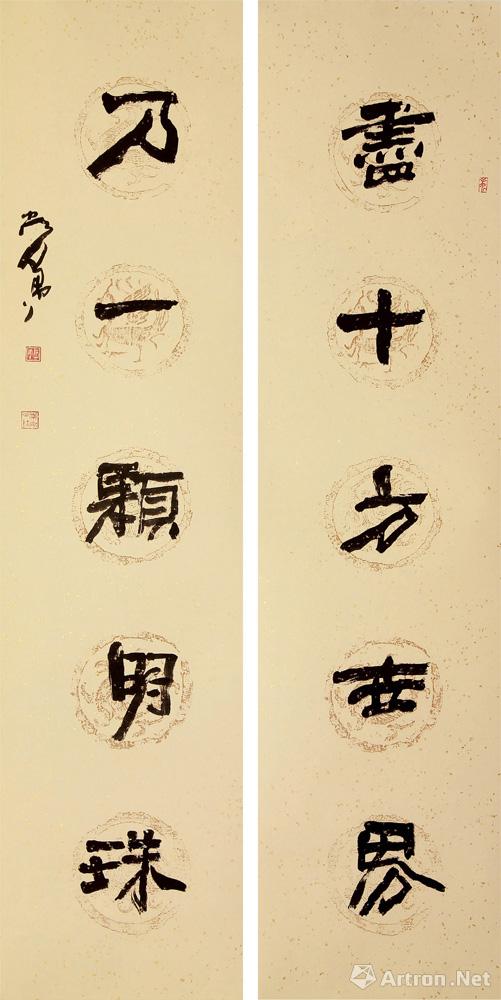 盡十方世界
乃一顆明珠
Artron.Net